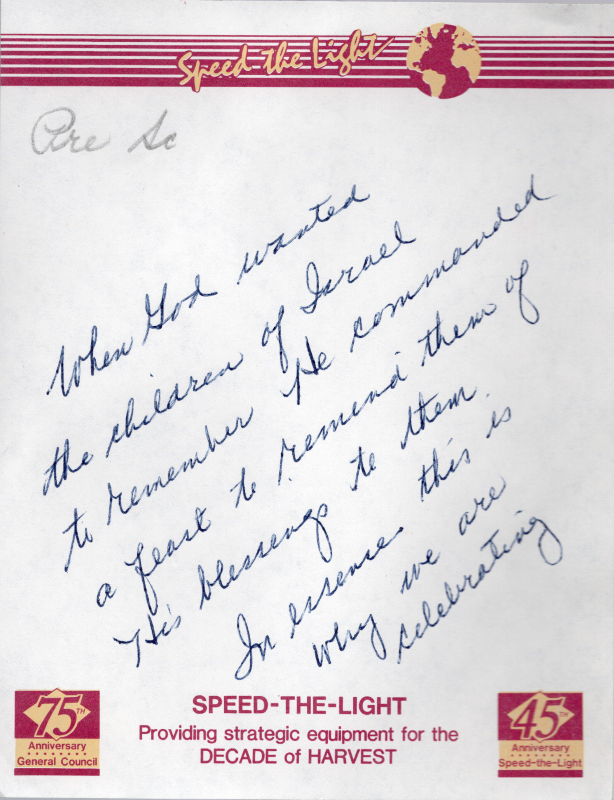 Speed-the-Light
Pre Sc
When God wanted
the children of Israel
to remember He commanded
a feast to remind them of
His blessings to them.
In essence this is
why we are
celebrating
SPEED-THE-LIGHT
Providing strategic equipment for the
DECADE of HARVEST
75TH
Anniversary
General Council
45TH
Anniversary
Speed-the-Light